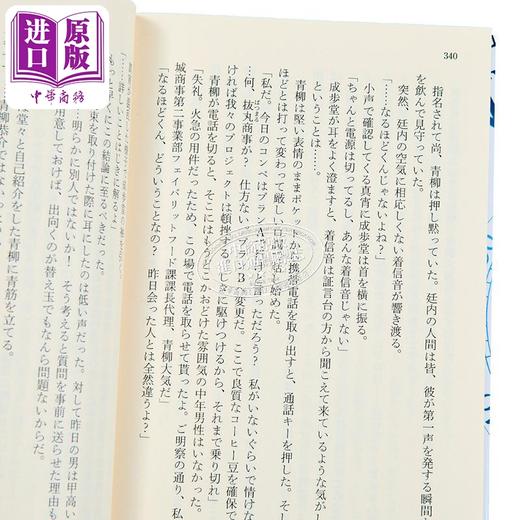 进口原版
中華商務
340
指名されて尚、青柳は押し黙っていた。廷内の人間は皆、彼が第一声を発する瞬間
を飲んで見守っていた。
突然、廷内の空気に相応しくない着信音が響き渡る。
「……なるほどくんじゃないよね？」
小声で確認してくる真宵に成歩堂は首を横に振る。
「ちゃんと電源は切ってるし、あんな着信音じゃない」
成歩堂が耳をよく澄ますと、着信音は証言台の方から聞こえて来ているような気がし
ということは……。
青柳は堅い表情のままポケットか
携帯電話を取り出すと、通話キーを押した。そし
ほどとは打って変わって厳しい口調
話し始めた。
「私だ。今日のコンペはプランA
行けと言っただろう？　私がいないぐらいで情けな
…何、抜丸商事が？　仕方ない
プランB
変更だ。ここで良質なコーヒー豆を確保で
ければ我々のプロジェクトは頓挫する。
に駆けつけるから、それまで乗り切れ」
青柳が電話を切ると、そこにはもう
こかおどけた雰囲気の中年男性はいなかった。
「失礼。火急の用件だったため、この場で電話を取らせて貰ったよ。ご明察の通り、私
城商事第二事業部フェイバリットフード課課長代理、青柳大気だ」
「なるほどくん、どういうことなの？　昨日会った人とは全然違うよ？」
「……詳しいことはじきに解るよ」
もっと早
にこの結論に至るべきだった。
束を取り付けた際に耳にしたのは低い声だった。対して昨日の男は甲高い
……明らかに別人ではないか！　そう考えると質問を事前に送らせた理由も
用意しておけば、出向くのが替え玉でもなんら問題ないからだ。
堂々と自己紹介をした青柳に青筋を立てる。
青柳恭介ではない